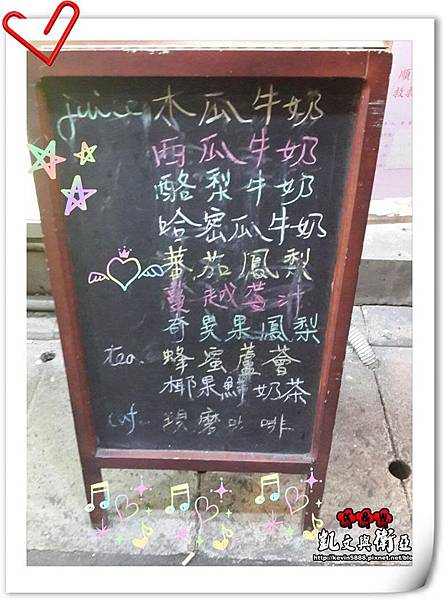 juice 木瓜牛奶
西瓜牛奶
酪梨牛奶
哈密瓜牛奶
蕃茄鳳梨
蔓越莓汁
奇異果鳳梨
tea. 蜂蜜蘆薈
椰果鮮奶茶
caf 現磨咖啡
順
K&W
凱文與衛亞
http://kevin5888.pixnet.net/blog